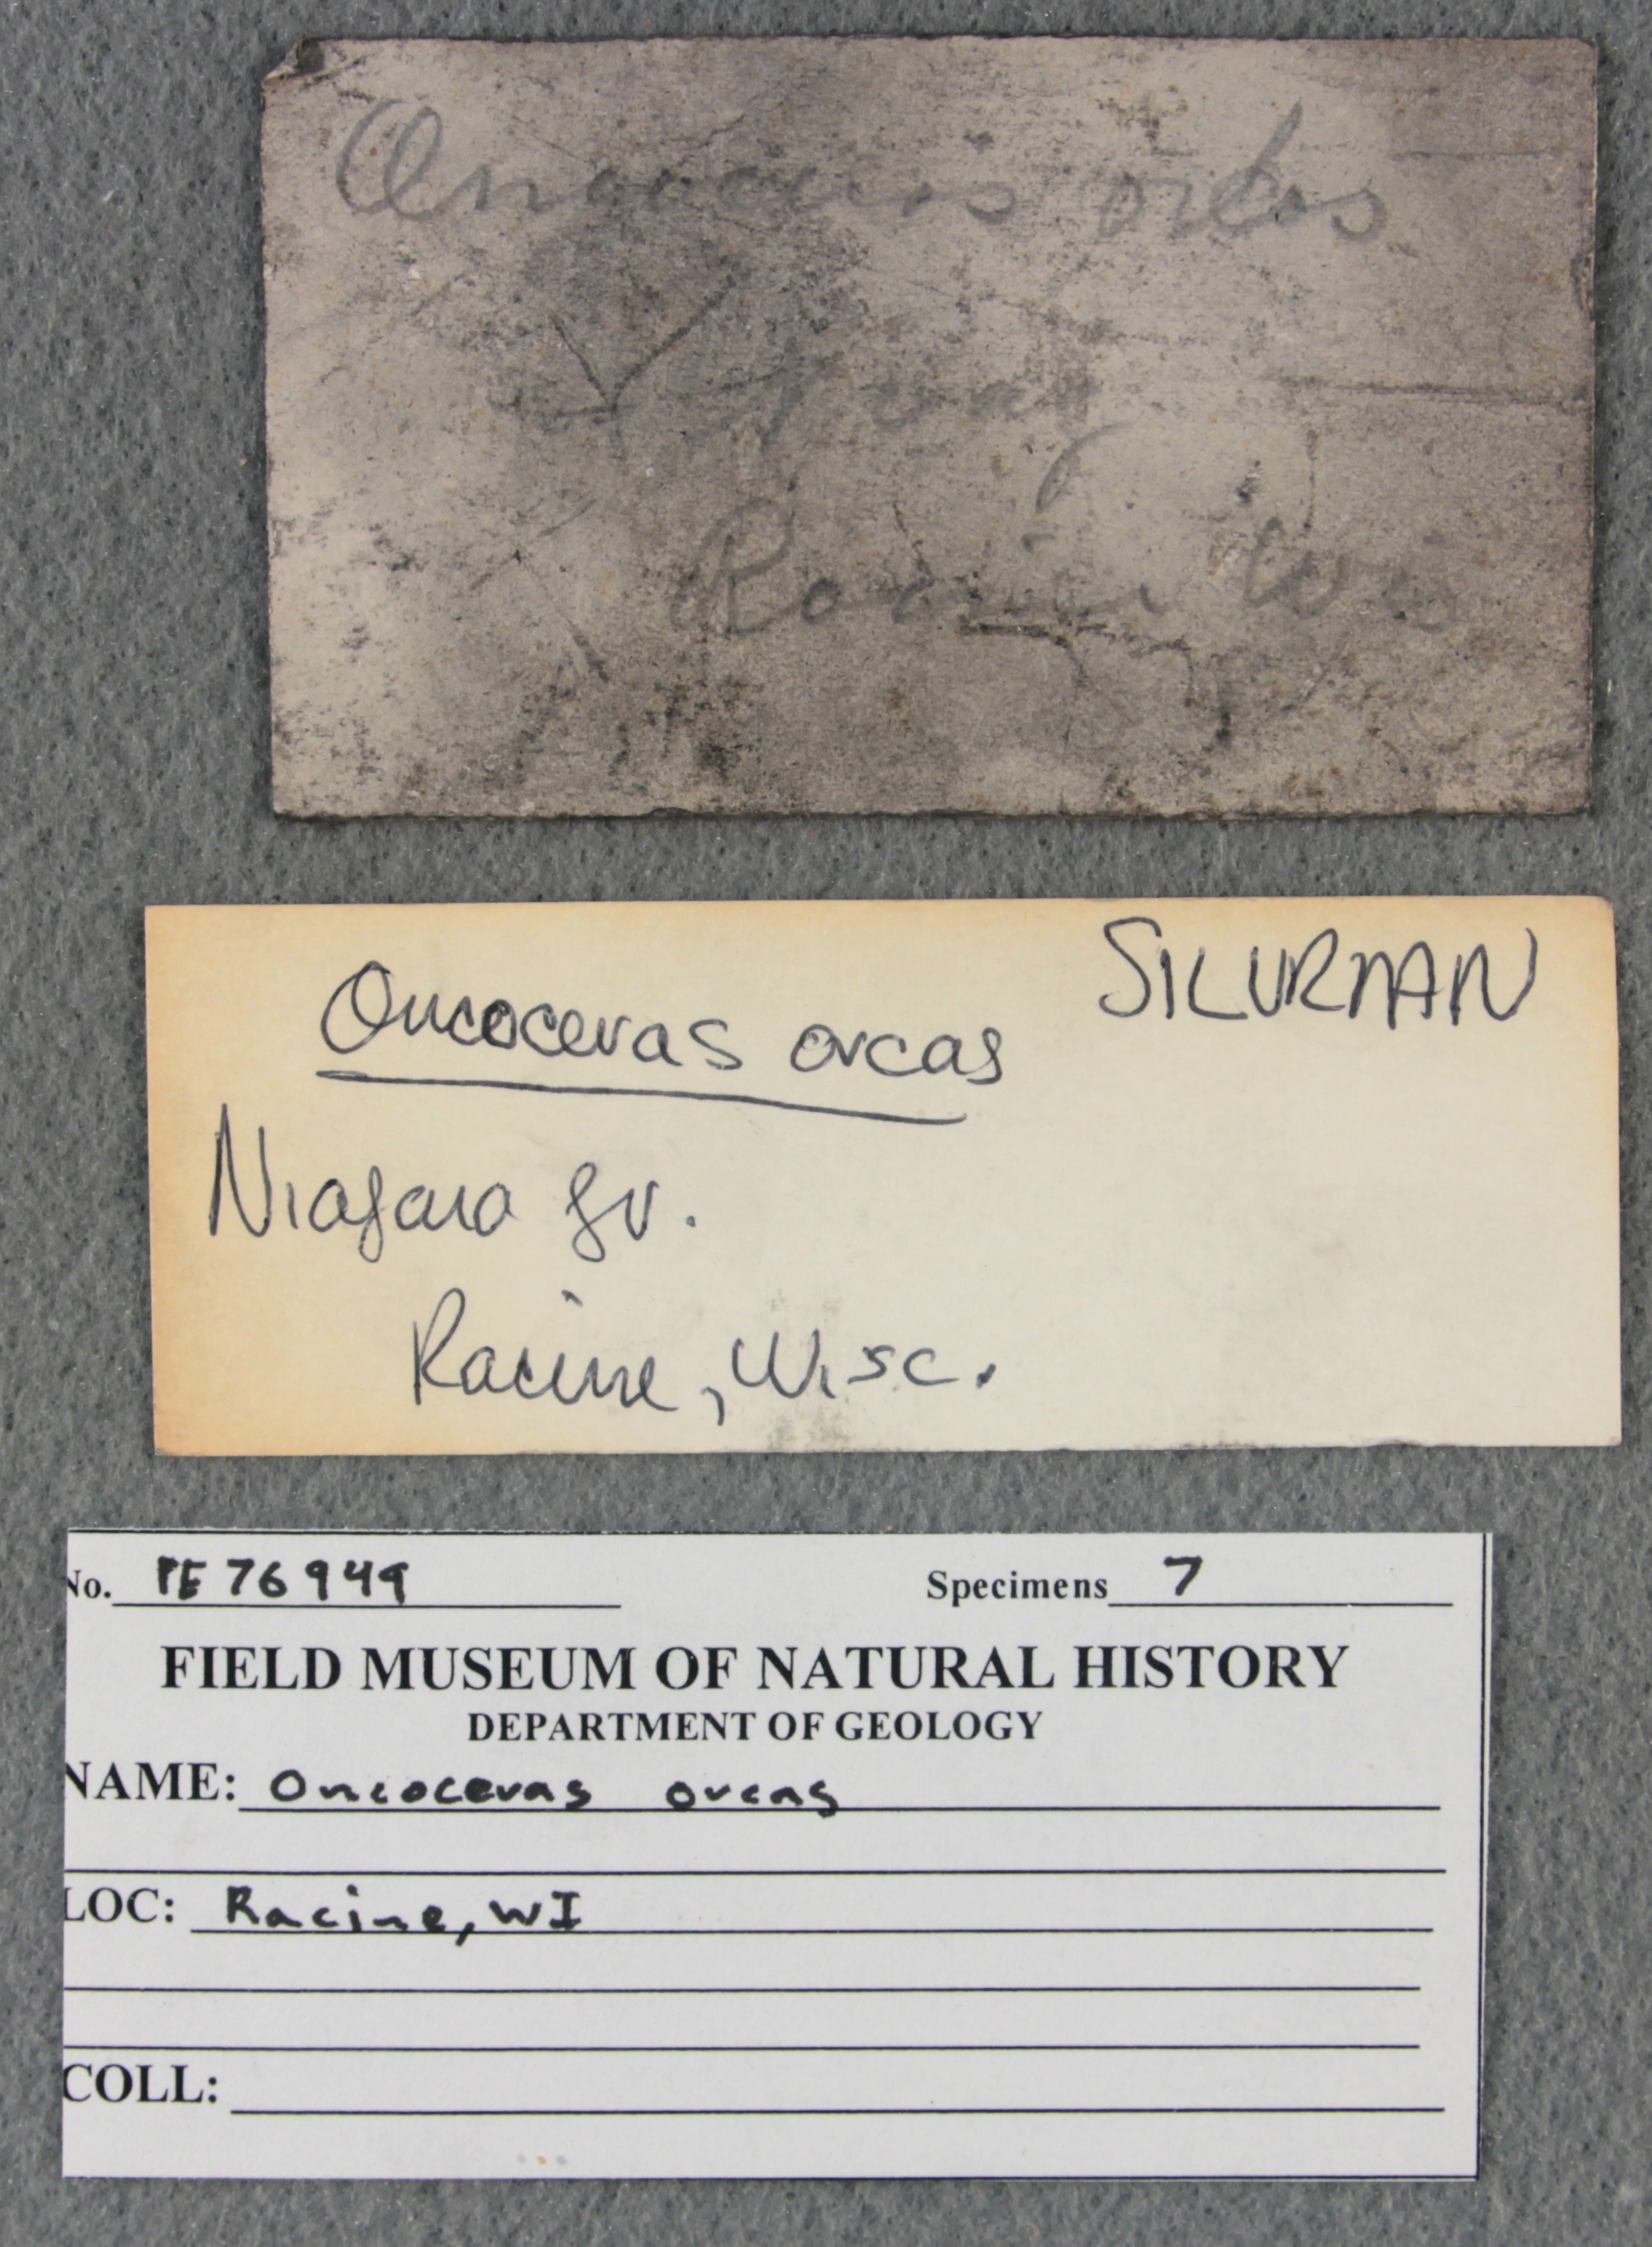 Oncoceras orcas
Racine Wis
SILURIAN
Oncoceras orcas
Niagara gr.
Racine, Wisc.
No. PE 76949
Specimens 7
FIELD MUSEUM OF NATURAL HISTORY
DEPARTMENT OF GEOLOGY
NAME: Oncoceras orcas
LOC: Racine, WI
COLL: